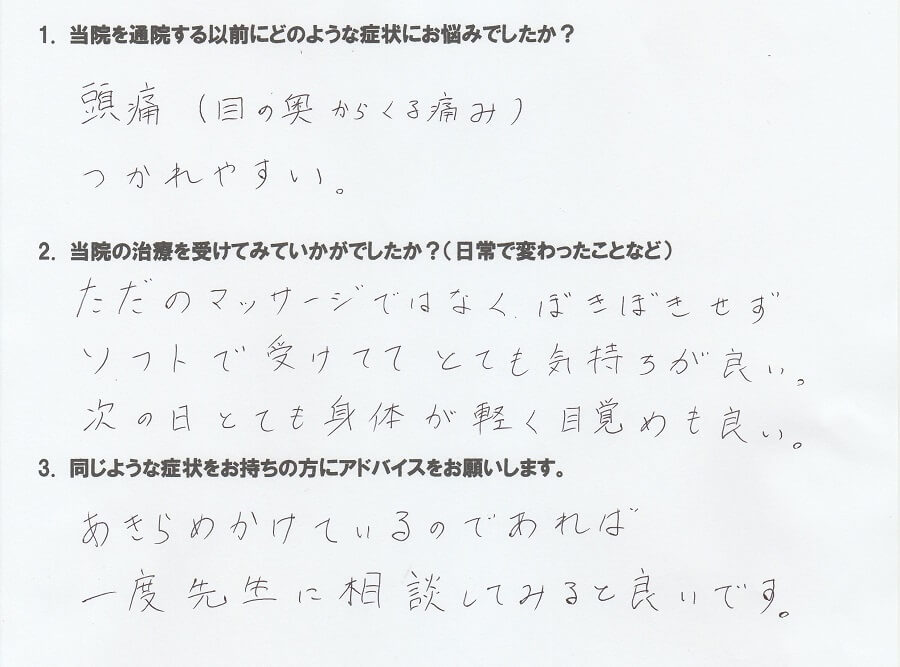 1. 当院を通院する以前にどのような症状にお悩みでしたか？
頭痛（目の奥からくる痛み）
つかれやすい。
2. 当院の治療を受けてみていかがでしたか？（日常で変わったことなど）
ただのマッサージではなく、ぼきぼきせず
ソフトで受けててとても気持ちが良い。
次の日とても身体が軽く目覚めも良い。
3. 同じような症状をお持ちの方にアドバイスをお願いします。
あきらめかけているのであれば
一度先生に相談してみると良いです。